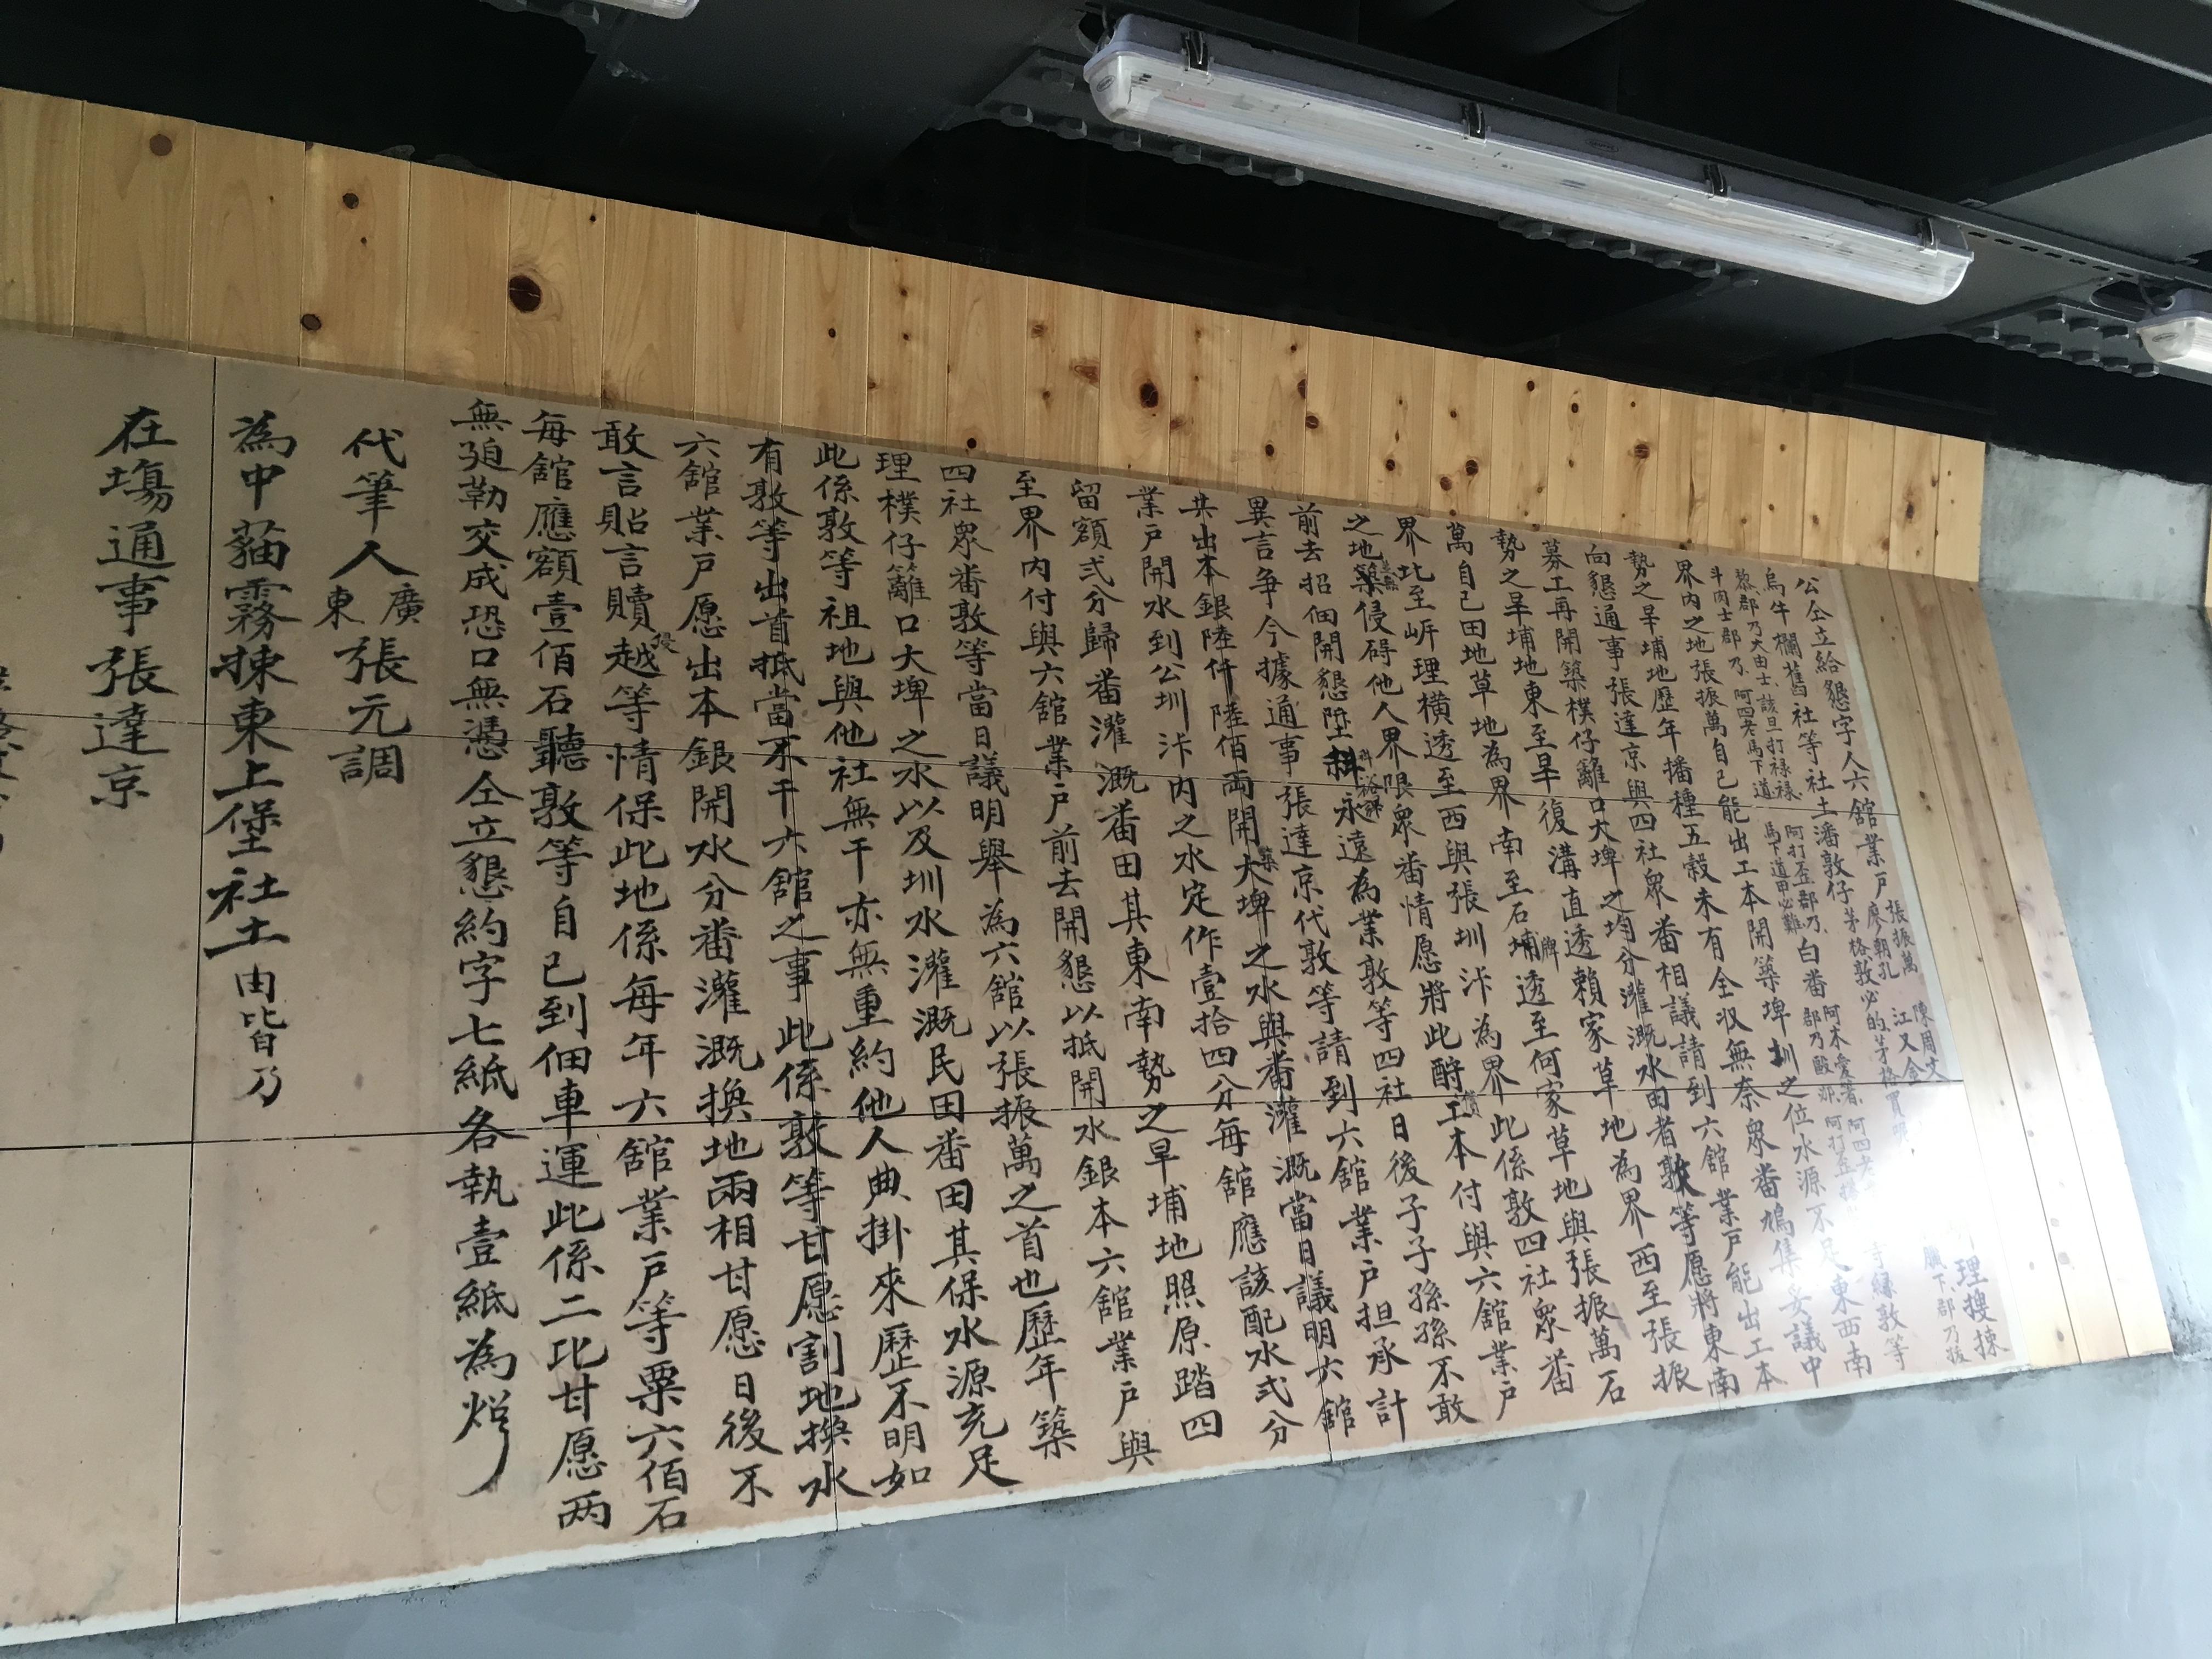 公仝立給懇字人六館業戶
張振萬
陳周文
廖朝孔
江又金
理搜揀
烏牛欄舊社等社土潘敦仔茅格敦必的茅格買
等緣敦等
黎郡乃大由士該旦打祿祿
阿打歪郡乃白番
斗肉士郡乃阿四老馬下道
馬下道甲必難
界內之地張振萬自己能出工本開築埤圳之位水源不足東西南
勢之旱埔地歷年播種五穀未有全收無奈眾番鳩集妥議中
向懇通事張達京與四社眾番相議請到六館業戶能出工本
募工再開築樸仔籬口大埤之均分灌溉水田者敦等愿將東南
勢之旱埔地東至旱復溝直透賴家草地為界西至張振
萬自己田地草地為界南至石牌透至何家草地與張振萬石
界北至岍理橫透至西與張圳汴為界此係敦四社眾番
之地並無侵碍他人界限眾番情愿將此酧工本付與六館業戶
前去招佃開懇陞科永遠為業敦等四社日後子子孫孫不敢
異言争今據通事張達京代敦等請到六館業戶担承計
共出本銀陸仟陸佰両開築大埤之水與番灌溉當日議明六館
業戶開水到公圳汴內之水定作壹拾四分每館應該配水弍分
留額弍分歸番灌溉番田其東南勢之旱埔地照原踏四
至界內付與六館業戶前去開懇以抵開水銀本六館業戶與
四社眾番敦等當日議明舉為六館以張振萬之首也歷年築
理樸仔籬口大埤之水以及圳水灌溉民田番田其保水源充足
此係敦等祖地與他社無干亦無重約他人典掛來歷不明如
有敦等出首抵當不干六館之事此係敦等甘愿割地換水
六館業戶愿出本銀開水分番灌溉換地兩相甘愿日後不
敢言貼言贖侵越等情保此地係每年六館業戶等粟六佰石
每館應額壹佰石聽敦等自己到佃車運此係二比甘愿两
無廹勒交成恐口無憑仝立懇約字七紙各執壹紙為炤
代筆人廣東張元調
為中貓霧揀東上堡社土由皆乃
在塲通事張達京